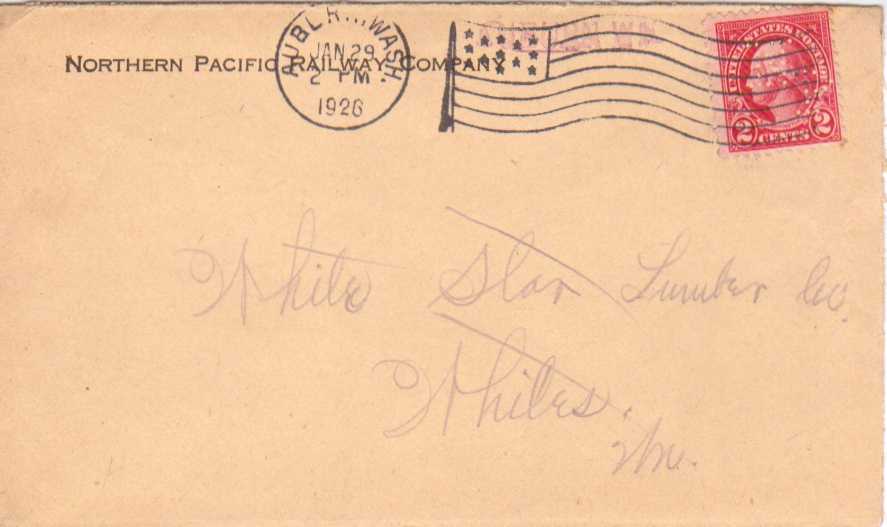 AUBURN WASH.
JAN 29
2 PM
1926
NORTHERN PACIFIC RAILWAY COMPANY
UNITED STATES POSTAGE
2 CENTS 2
White Star Lumber Co.
Whites.
Wn.